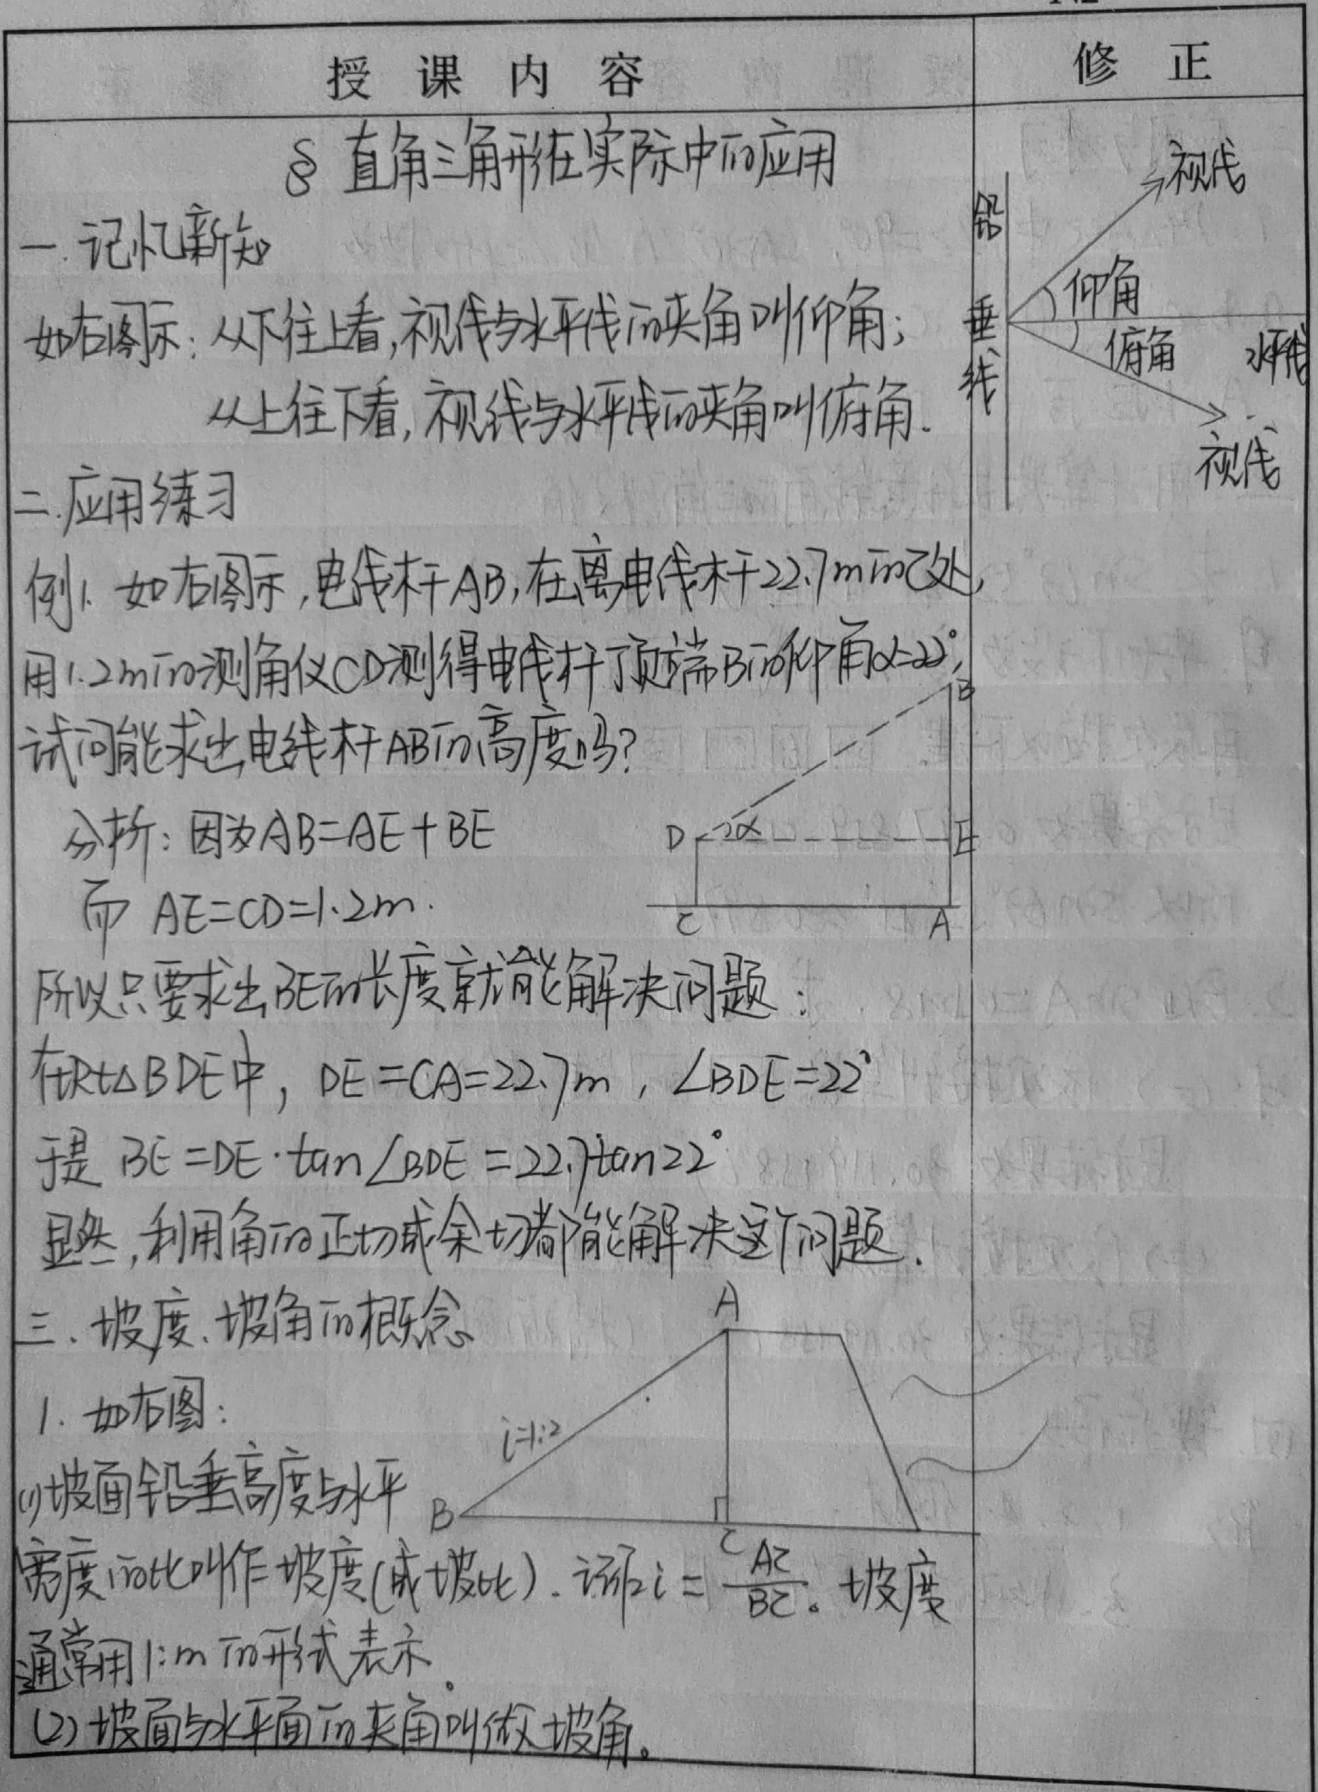 授课内容
修正
§ 直角三角形在实际中的应用
一.记忆新知
如右图示:从下往上看,视线与水平线的夹角叫仰角;
从上往下看,视线与水平线的夹角叫俯角.
铅垂线
视线
仰角
俯角
水平线
视线
二.应用练习
例1.如右图示,电线杆AB,在离电线杆22.7m的C处,
用1.2m的测角仪CD测得电线杆顶端B的仰角α=22°,
试问能求出电线杆AB的高度吗?
分析:因为AB=AE+BE
而 AE=CD=1.2m.
B
D
α
E
C
A
所以只要求出BE的长度就能解决问题:
在Rt△BDE中, DE=CA=22.7m, ∠BDE=22°
于是 BE=DE·tan∠BDE=22.7tan22°
显然,利用角的正切或余切都能解决这个问题.
三.坡度、坡角的概念
1.如右图:
A
i=1:2
B
C
(1)坡面铅垂高度与水平
宽度的比叫作坡度(或坡比).记作i=AC/BC。坡度
通常用1:m的形式表示.
(2)坡面与水平面的夹角叫做坡角。